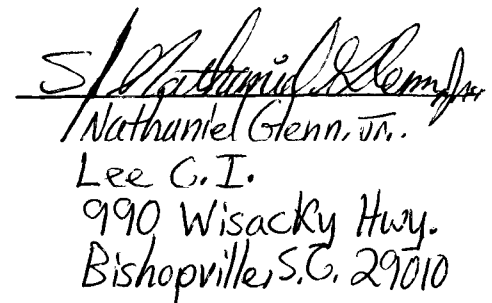 S/ Nathaniel Glenn Jr.
Nathaniel Glenn, Jr.
Lee C.I.
990 Wisacky Hwy.
Bishopville, S.C. 29010